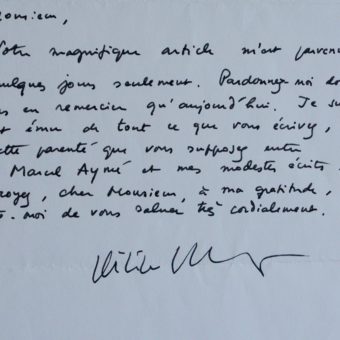 onsieur,
otre magnifique article m'est parvenu
uelques jours seulement. Pardonnez moi do
us en remercier qu'aujourd'hui. Je su
t ému de tout ce que vous écrivez,
tte parenté que vous supposez entre
Marcel Aymé et mes modestes écrits
royez, cher Monsieur, à ma gratitude,
s-moi de vous saluer très cordialement.